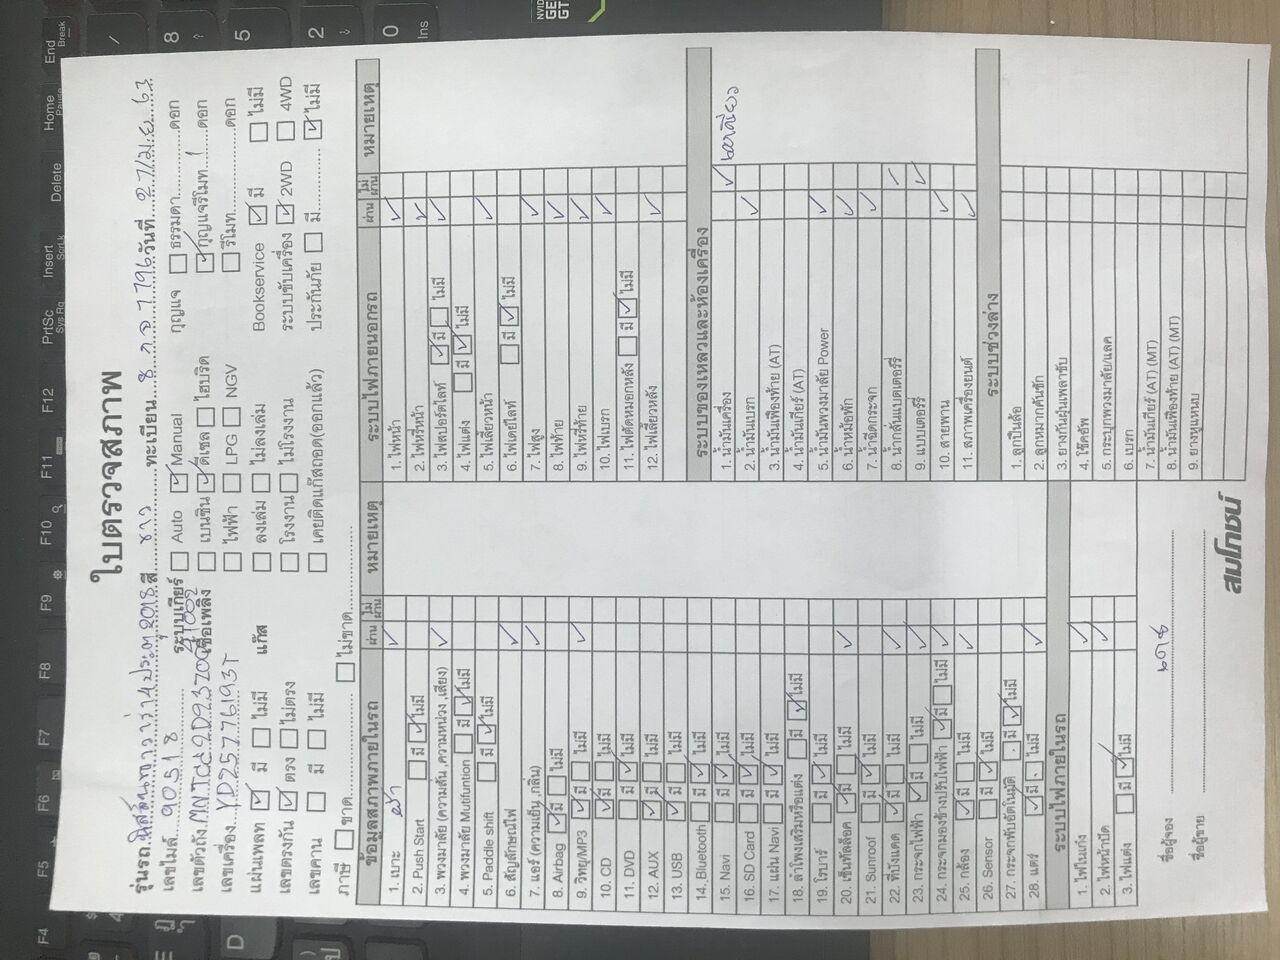 ใบตรวจสภาพ
รุ่นรถ นิสสันนาวาร่า 4ประตู 2018 สี ขาว ทะเบียน วันที่ 27/เม.ย 63
เลขไมล์ 90518 ระบบเกียร์ Auto Manual กุญแจ ธรรมดา ดอก
เลขตัวถัง เชื้อเพลิง เบนซิน ดีเซล ไฮบริด กุญแจรีโมท 1 ดอก
เลขเครื่อง YD25776193T ไฟฟ้า LPG NGV รีโมท ดอก
แผ่นเพลท มี ไม่มี แก๊ส ลงเล่ม ไม่ลงเล่ม Bookservice มี ไม่มี
เลขตรงกัน ตรง ไม่ตรง โรงงาน ไม่โรงงาน ระบบขับเครื่อง 2WD 4WD
เลขคาน มี ไม่มี เคยติดแก๊สถอด(ออกแล้ว) ประกันภัย มี ไม่มี
ภาษี ขาด ไม่ขาด
ข้อมูลสภาพภายในรถ ผ่าน ไม่ผ่าน หมายเหตุ
1. เบาะ
2. Push Start มี ไม่มี
3. พวงมาลัย (ความสั่น ,ความหน่วง ,เสียง)
4. พวงมาลัย Mutifuntion มี ไม่มี
5. Paddle shift มี ไม่มี
6. สัญลักษณ์ไฟ
7. แอร์ (ความเย็น ,กลิ่น)
8. Airbag มี ไม่มี
9. วิทยุ/MP3 มี ไม่มี
10. CD มี ไม่มี
11. DVD มี ไม่มี
12. AUX มี ไม่มี
13. USB มี ไม่มี
14. Bluetooth มี ไม่มี
15. Navi มี ไม่มี
16. SD Card มี ไม่มี
17. แผ่น Navi มี ไม่มี
18. ลำโพงเสริมหรือแต่ง มี ไม่มี
19. โรบาร์ มี ไม่มี
20. เซ็นทัลล็อค มี ไม่มี
21. Sunroof มี ไม่มี
22. ที่บังแดด มี ไม่มี
23. กระจกไฟฟ้า มี ไม่มี
24. กระจกมองข้างปรับไฟฟ้า มี ไม่มี
25. กล้อง มี ไม่มี
26. Sensor มี ไม่มี
27. กระจกพับอัตโนมัติ มี ไม่มี
28. แตร์ มี ไม่มี
ระบบไฟภายในรถ
1. ไฟในเก๋ง
2. ไฟหน้าปัด
3. ไฟแต่ง มี ไม่มี
ระบบไฟภายนอกรถ ผ่าน ไม่ผ่าน หมายเหตุ
1. ไฟหน้า
2. ไฟหรี่หน้า
3. ไฟสปอร์ตไลท์ มี ไม่มี
4. ไฟแต่ง มี ไม่มี
5. ไฟเลี้ยวหน้า
6. ไฟเดย์ไลท์ มี ไม่มี
7. ไฟสูง
8. ไฟท้าย
9. ไฟหรี่ท้าย
10. ไฟเบรก
11. ไฟตัดหมอกหลัง มี ไม่มี
12. ไฟเลี้ยวหลัง
ระบบของเหลวและห้องเครื่อง
1. น้ำมันเครื่อง
2. น้ำมันเบรก
3. น้ำมันเฟืองท้าย (AT)
4. น้ำมันเกียร์ (AT)
5. น้ำมันพวงมาลัย Power
6. น้ำหม้อพัก
7. น้ำฉีดกระจก
8. น้ำกลั่นแบตเตอร์รี่
9. แบบเตอร์รี่
10. สายพาน
11. สภาพเครื่องยนต์
ระบบช่วงล่าง
1. ลูกปืนล้อ
2. ลูกหมากคันชัก
3. ยางกันฝุ่นเพลาขับ
4. โช๊คอัพ
5. กระปุกพวงมาลัย/แลค
6. เบรก
7. น้ำมันเกียร์ (AT) (MT)
8. น้ำมันเฟืองท้าย (AT) (MT)
9. ยางหูแหนบ
ชื่อผู้จอง
ชื่อผู้ขาย
สมโภชน์
F4
F5
F6
F7
F8
F9
F10
F11
F12
PrtSc
Sys Rq
Insert
Delete
Home
End
Break
Ins